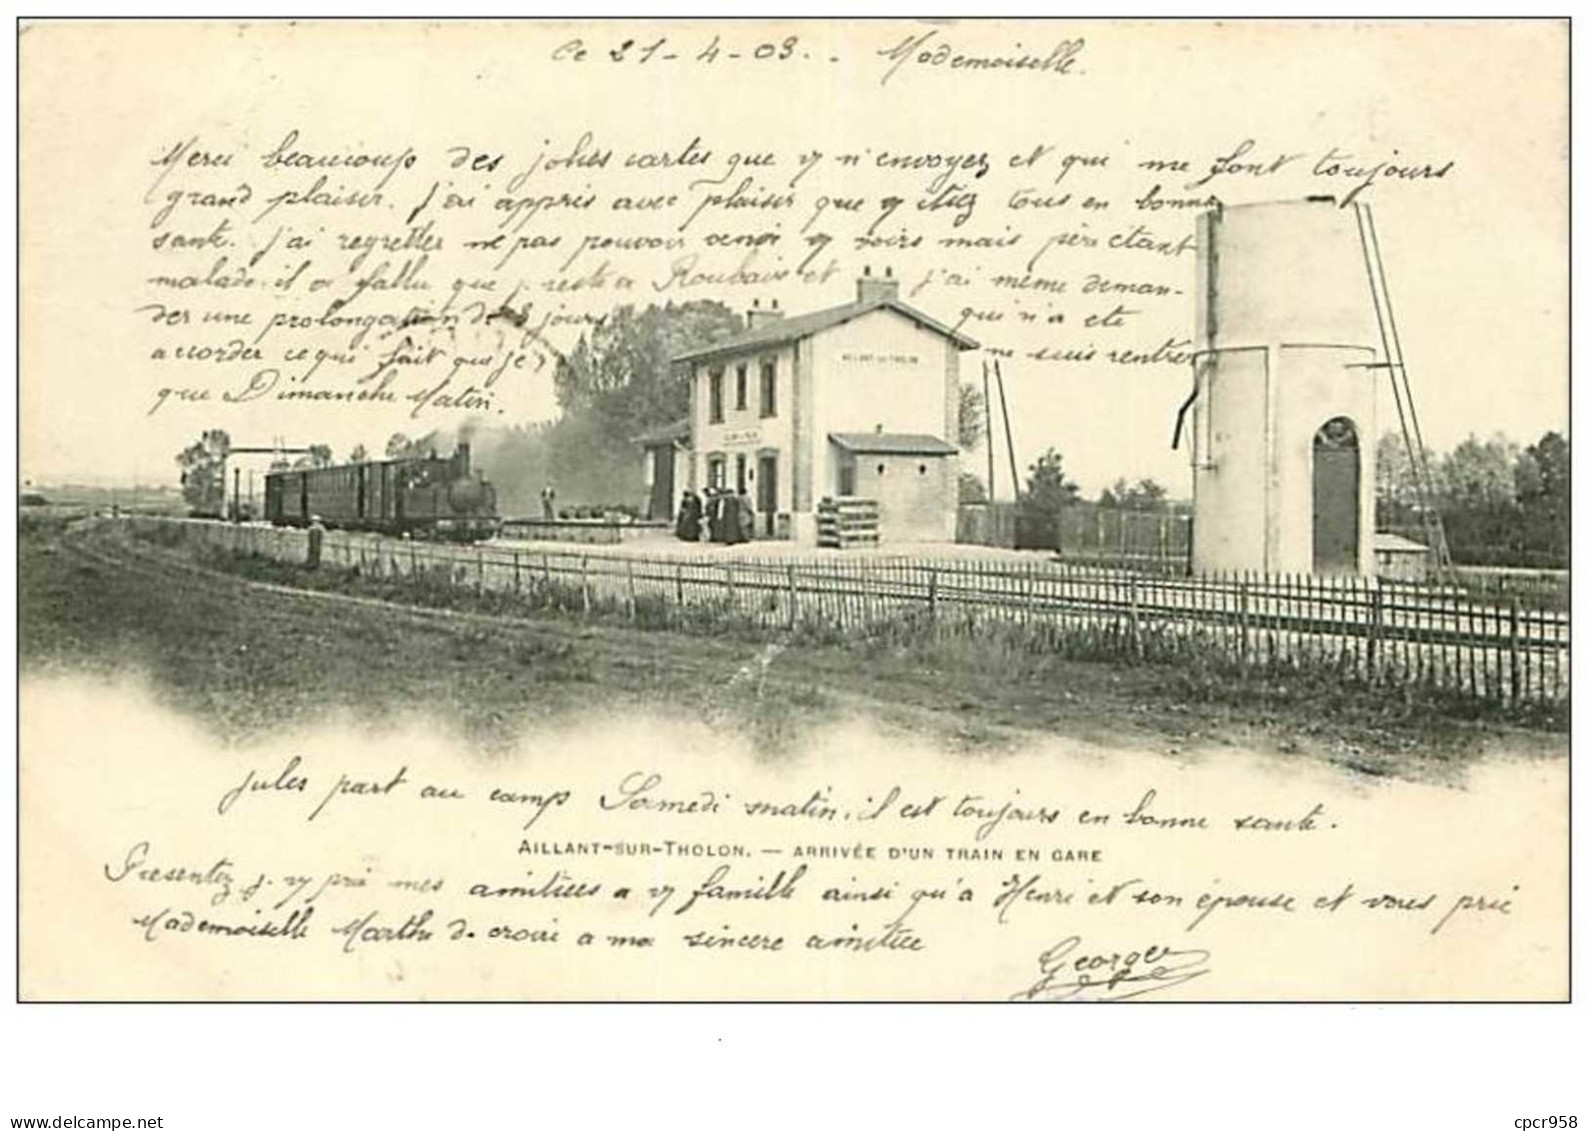 Ce 21-4-03. - Mademoiselle.
Merci beaucoup des jolies cartes que v m'envoyez et qui me font toujours
grand plaisir. J'ai appris avec plaisir que v êtez tous en bonne
sante. J'ai regretter ne pas pouvoir venir v voirs mais père etant
malade. il a fallu que j. reste a Roubaix et j'ai même deman-
der une prolongation de 8 jours qui n'a ete
accorder ce qui fait que je ne suis rentrer
que Dimanche Matin.
AILLANT-SUR-THOLON
Jules part au camp Samedi matin, il est toujours en bonne sante.
AILLANT-SUR-THOLON. — ARRIVÉE D'UN TRAIN EN GARE
Presentez j. v prie mes amitiées a v famille ainsi qu'a Henri et son épouse et vous prie
Mademoiselle Marthe d. croire a ma sincere amitiee
Georges
www.delcampe.net
cpcr958